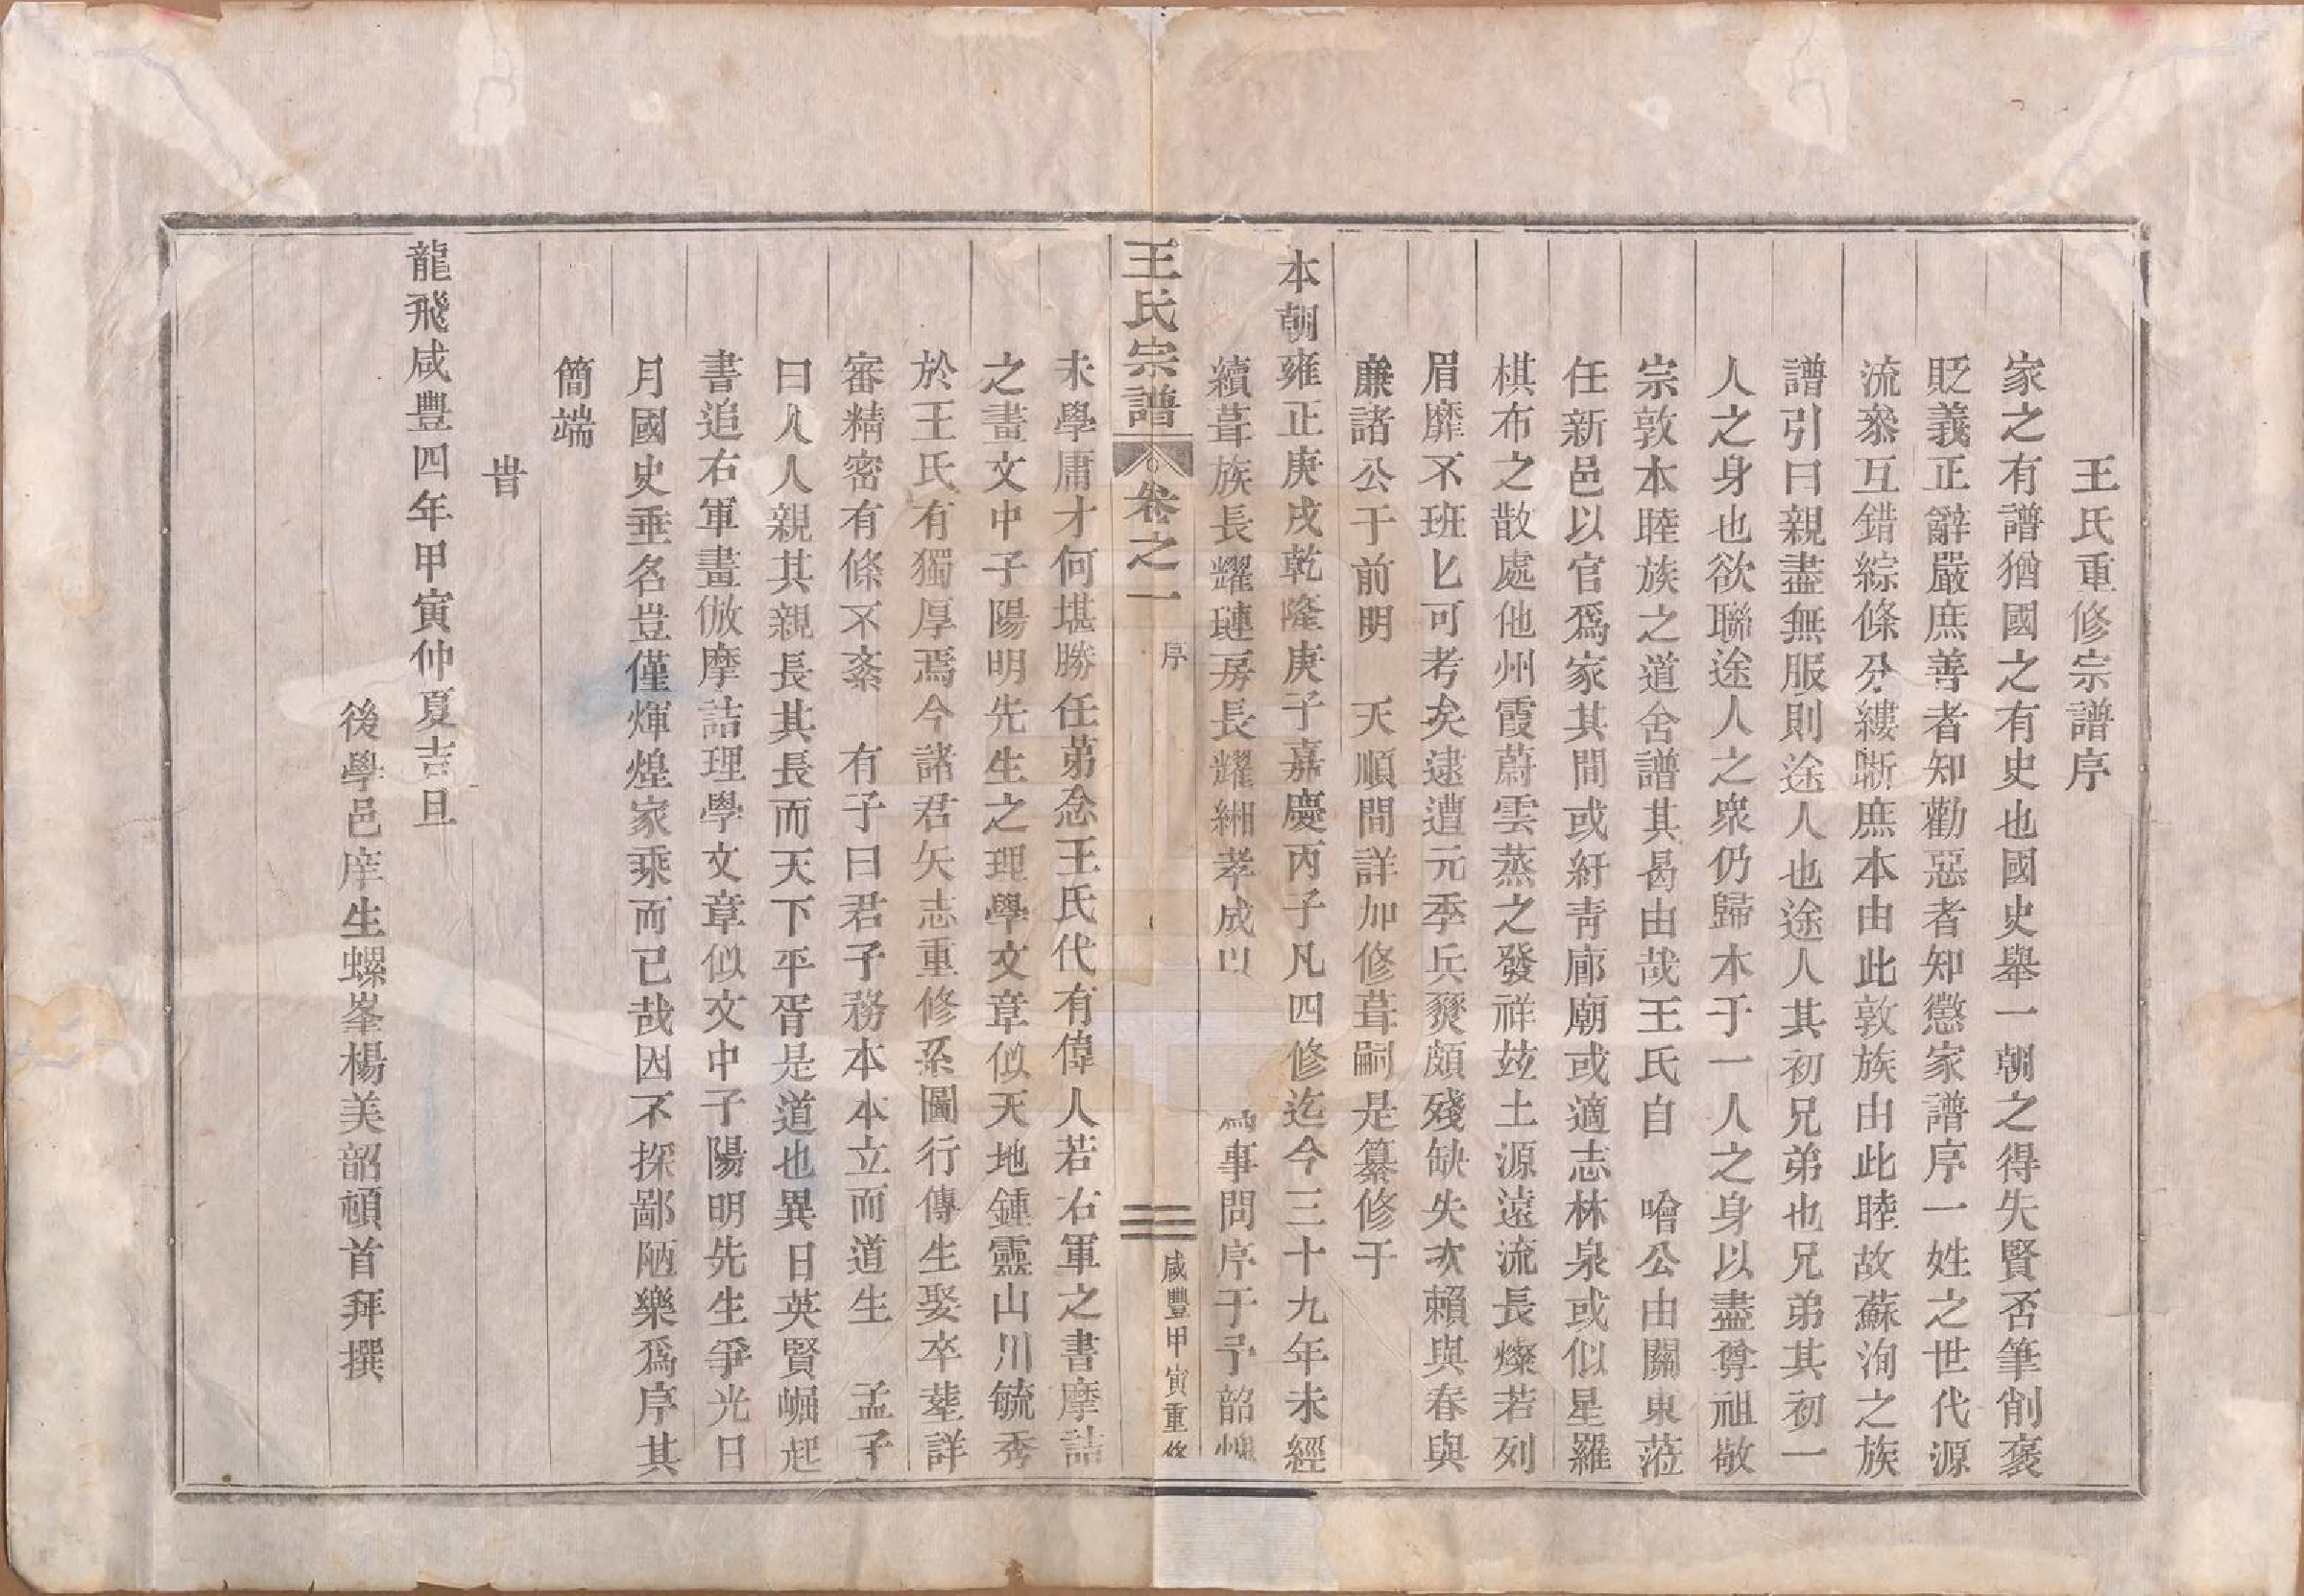 王氏重修宗譜序
家之有譜猶國之有史也國史舉一朝之得失賢否筆削褒
貶義正辭嚴庶善者知勸惡者知懲家譜序一姓之世代源
流叅互錯綜條分縷晰庶本由此敦族由此睦故蘇洵之族
譜引曰親盡無服則途人也途人其初兄弟也兄弟其初一
人之身也欲聯途人之衆仍歸木于一人之身以盡尊祖敬
宗敦本睦族之道舍譜其曷由哉王氏自 噲公由關東蒞
任新邑以官爲家其間或紆靑廊廟或適志林泉或似星羅
棋布之散處他州霞蔚雲蒸之發祥玆土源遠流長燦若列
眉靡不班匕可考矣逮遭元季兵燹頗殘缺失次賴與春與
亷諸公于前明 天順間詳加修葺嗣是纂修于
本朝雍正庚戌乾隆庚子嘉慶丙子凡四修迄今三十九年未經
續葺族長耀璉房長耀緗孝成以 事問序于予韶愧
王氏宗譜 卷之一 序 三 咸豐甲寅重修
未學庸才何堪勝任苐念王氏代有偉人若右軍之書摩詰
之畫文中子陽明先生之理學文章似天地鍾靈山川毓秀
於王氏有獨厚焉今諸君矢志重修系圖行傳生娶卒塟詳
審精密有條不紊 有子曰君子務本本立而道生 孟子
曰人人親其親長其長而天下平胥是道也異日英賢崛起
書追右軍畫倣摩詰理學文章似文中子陽明先生爭光日
月國史垂名豈僅煇煌家乘而已哉因不揣鄙陋樂爲序其
簡端
旹
龍飛咸豐四年甲寅仲夏吉旦
後學邑庠生螺峯楊美韶頓首拜撰